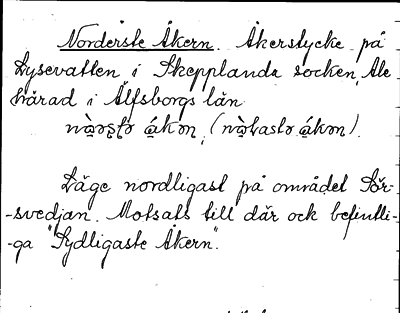 Norderste Åkern. Åkerstycke på
Lysevatten i Skepplanda socken, Ale
härad i Älfsborgs län
Läge nordligast på området Sör-
-svedjan. Motsats till där ock befintli-
-ga "Sydligaste Åkern".